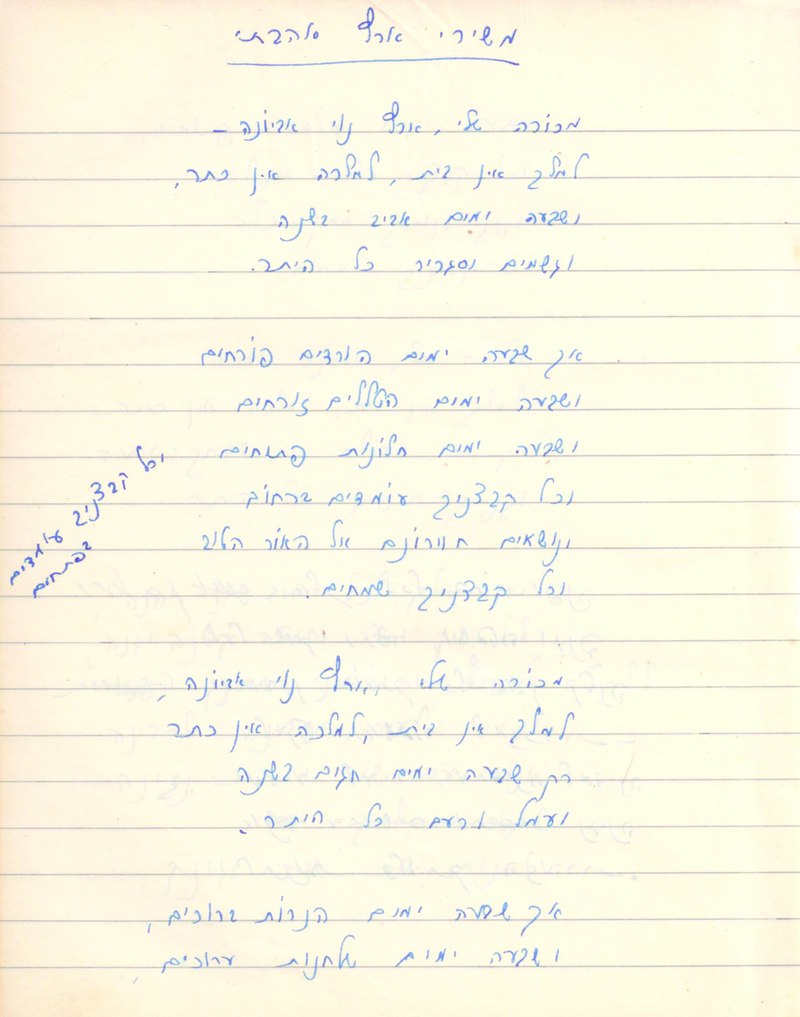 משירי ארץ אהבתי
מכורה שלי, ארץ נוי אביונה –
למלך אין בית, למלכה אין כתר,
ושבעה ימים אביב בשנה
וגשמים וסגריר כל היתר.
אך שבעה ימים הורדים פורחים
ושבעה ימים הטללים זורחים
ושבעה ימים חלונות פתוחים
וכל קבצניך עומדים ברחוב
ונושאים חוורונם אל האור הטוב
וכל קבצניך שמחים.
וכל קבצניך עומדים
בפתחים
מכורה שלי, ארץ נוי אביונה,
למלך אין בית, למלכה אין כתר
רק שבעה ימים חגים בשנה
ועמל ורעב כל היתר.
אך שבעה ימים הנרות ברוכים,
ושבעה ימים שלחנות ערוכים,